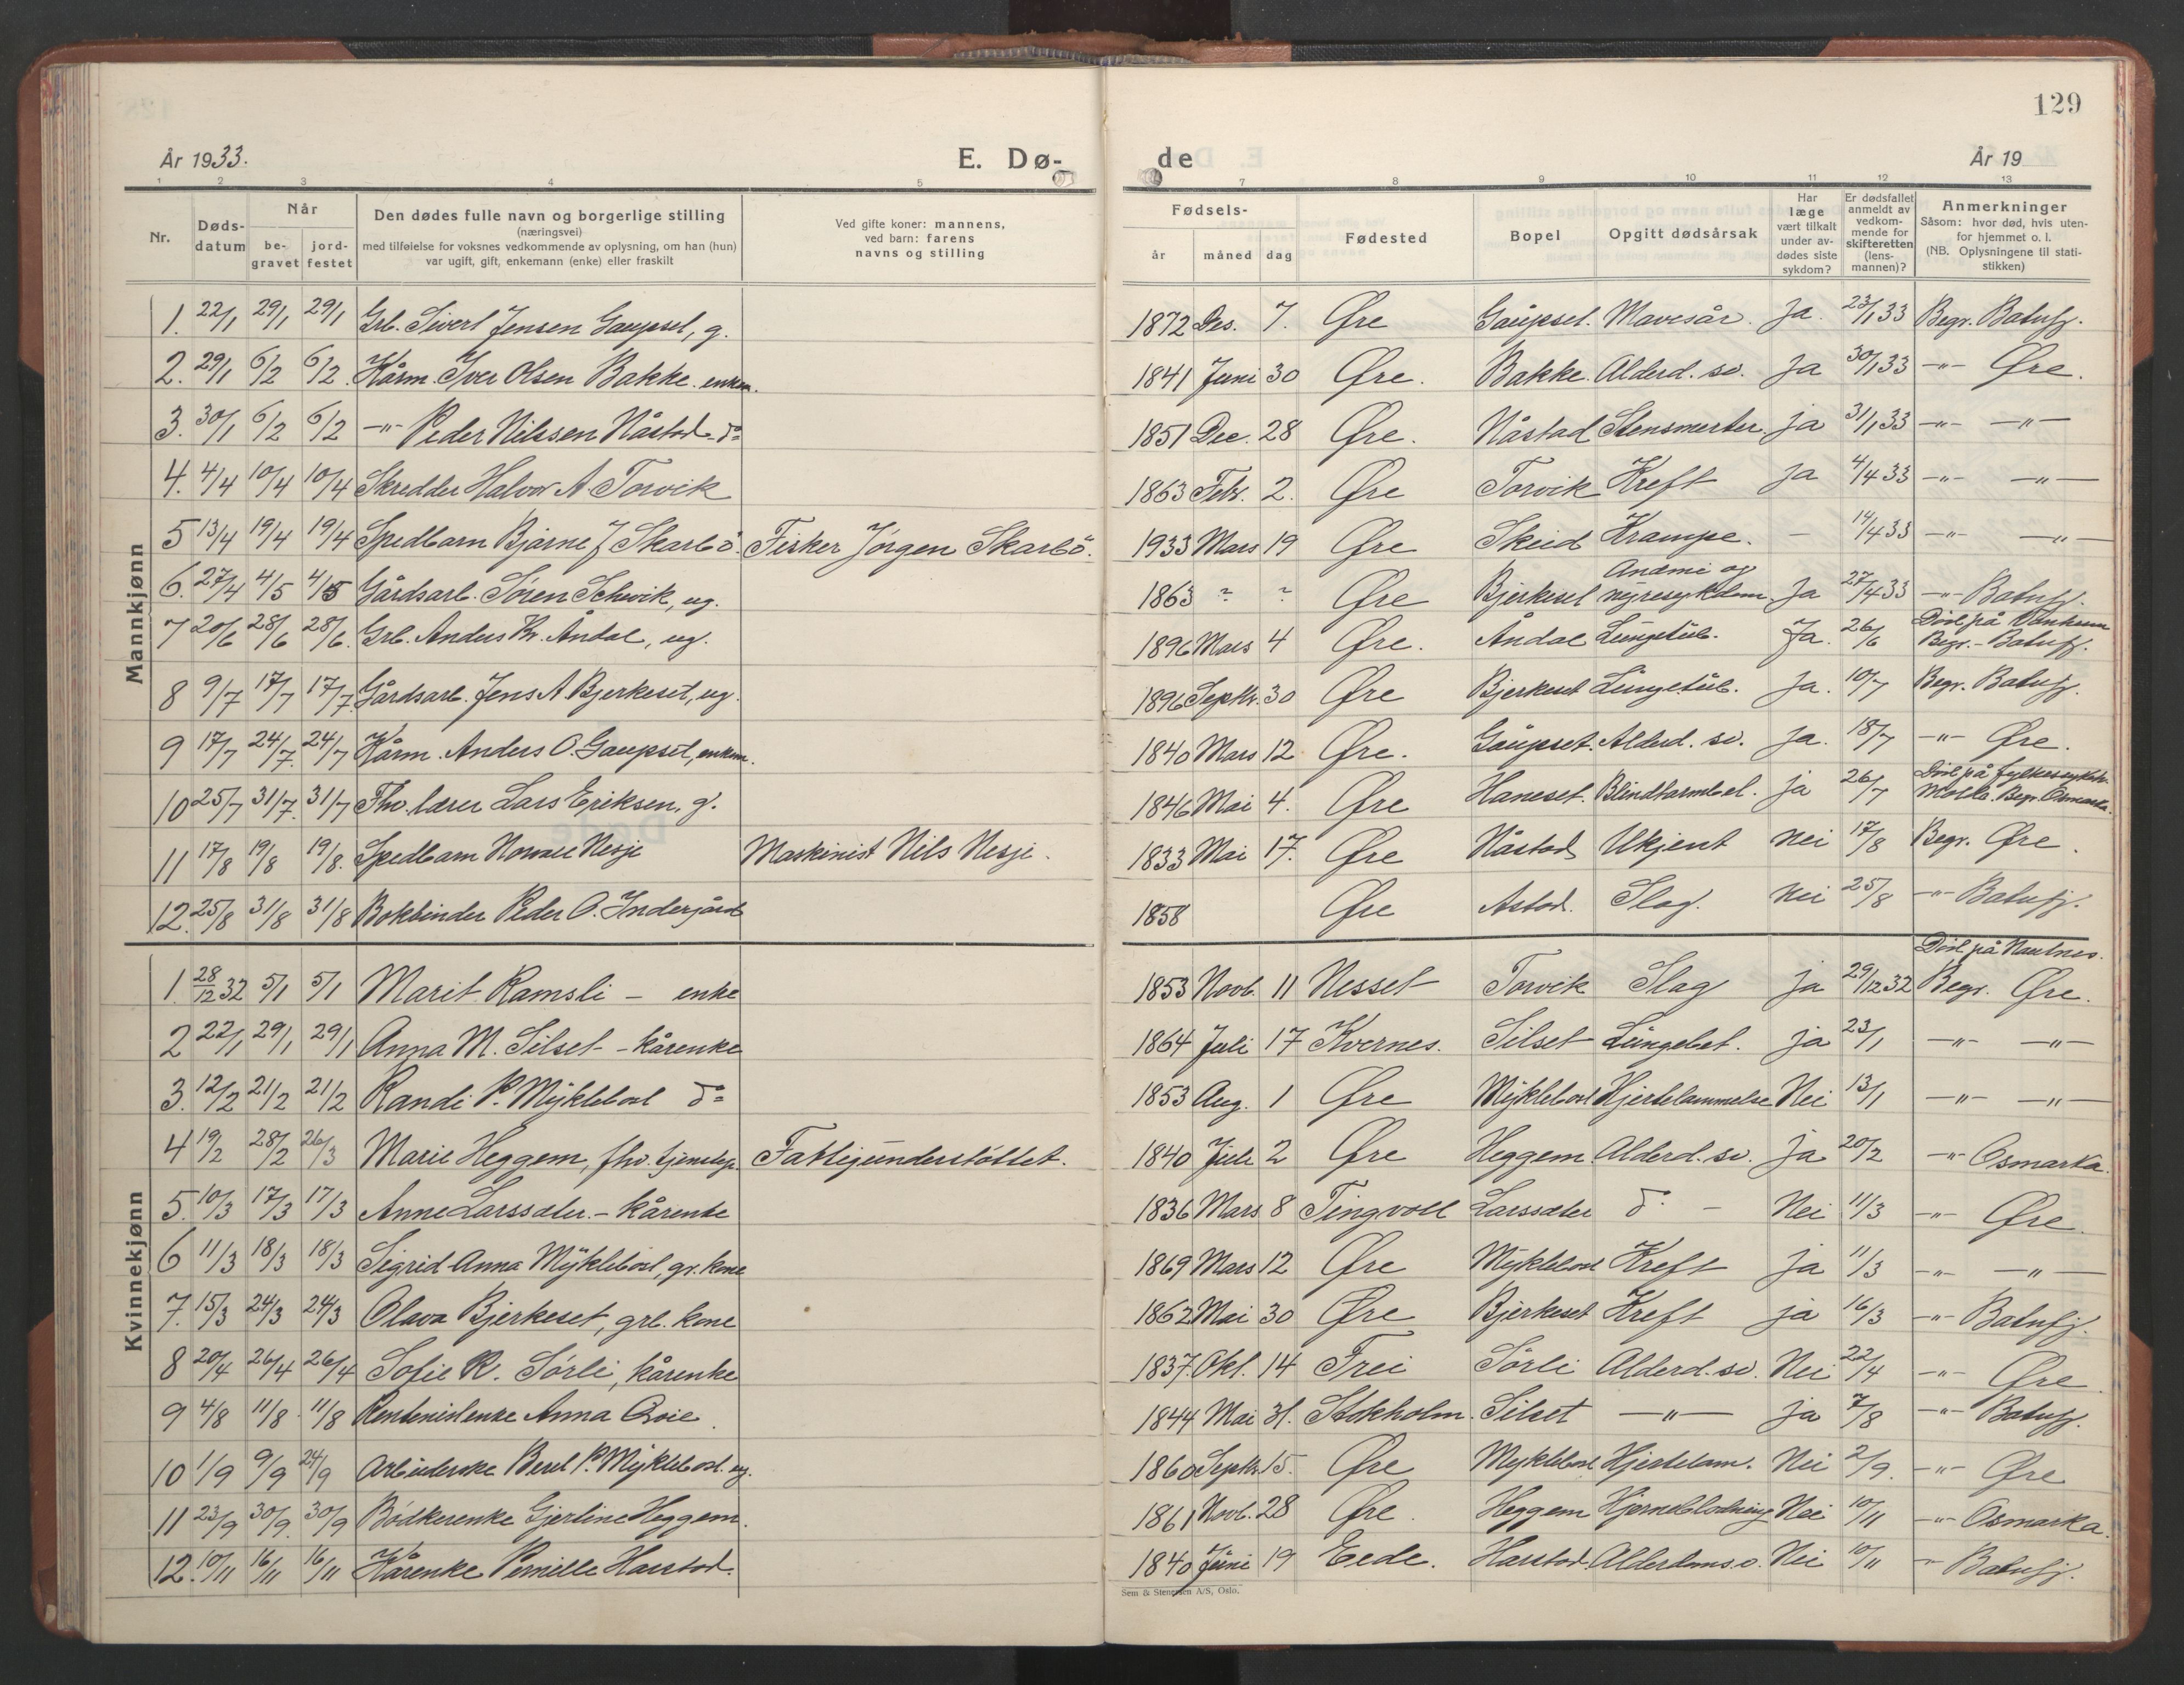 129
År 1933.
E. Dø-
de
År 19
1 2 3 4 5 7 8 9 10 11 12 13
Nr.
Døds-
datum
Når
be-
gravet
jord-
festet
Den dødes fulle navn og borgerlige stilling
(næringsvei)
med tilføielse for voksnes vedkommende av oplysning, om han (hun)
var ugift, gift, enkemann (enke) eller fraskilt
Ved gifte koner: mannens,
ved barn: farens
navns og stilling
Fødsels-
år måned dag
Fødested
Bopel
Opgitt dødsårsak
Har
læge
vært tilkalt
under av-
dødes siste
sykdom?
Er dødsfallet
anmeldt av
vedkom-
mende for
skifteretten
(lens-
mannen)?
Anmerkninger
Såsom: hvor død, hvis uten-
for hjemmet o. l.
(NB. Oplysningene til stati-
stikken)
Mannkjønn
1. 22/1 29/1 29/1 Grb. Sivert Jensen Gaupset, g. 1872 Des. 7. Øre Gaupset. Mavesår. Ja. 23/1 33 Begr. Batnfj.
2. 29/1 6/2 6/2 Kårm. Iver Olsen Bakke. enkem. 1841 Juni 30 Øre. Bakke. Alderd. sv. Ja 30/1 33 -"- Øre.
3. 30/1 6/2 6/2 -"- Peder Nilssen Nåstad - do 1851 Dec. 28 Øre. Nåstad Stensmerter ja 31/1 33 -"- -"-
4. 4/4 10/4 10/4 Skredder Halvor A. Torvik 1863 Febr. 2. Øre Torvik Kreft ja 4/4 33 -"- -"-
5 13/4 19/4 19/4 Spedbarn Bjarne J Skarbö. Fisker Jörgen Skarbö. 1933 Mars 19 Øre Skeid Krampe. - 14/4 33 -"- -"-
6. 27/4 4/5 4/5 Gårdsarb. Sören Schevik, ug. 1863 ? ? Øre Bjerkeset Anemi og nyresykdom Ja 27/4 33 -"- Batnfj.
7 20/6 28/6 28/6. Grb. Anders Kr. Åndal, ug. 1896 Mars 4 Øre. Åndal Lungetub. Ja. 26/6 Död på Begr. - Batnfj.
8 9/7 17/7 17/7. Gårdsarb. Jens A. Bjerkeset, ug. 1896 Septbr. 30 Øre Bjerkeset Lungetub. Ja. 10/7 Begr. Batnfj.
9 17/7 24/7. 24/7 Kårm. Anders O. Gaupset, enkem. 1840 Mars 12 Øre. Gaupset. Alderd. sv. Ja. 18/7 -"- Øre.
10 25/7 31/7. 31/7 Fhv. lærer Lars Eriksen, g. 1846 Mai 4. Øre Haneset. Blindtarmbet. ja 26/7 Död på fylkessykeh. Molde. Begr. Osmarka.
11 17/8 19/8 19/8. Spedbarn Nesje Maskinist Nils Nesje. 1833 Mai 17. Øre Nåstad Ukjent Nei 17/8 Begr. Øre.
12. 25/8 31/8 31/8 Bokbinder Peder O. Indergård 1858 Øre Astad. Slag. Nei 25/8 -"- Batnfj.
Kvinnekjønn
1. 28/12 32 5/1 5/1 Marit Ramsli - enke 1853 Novb. 11 Nesset Torvik Slag ja 29/12 32 Död på Begr. Øre.
2 22/1 29/1 29/1 Anna M. Silset - kårenke 1864 Juli 17 Kvernes. Silset Lungebet. ja 23/1 -"- -"-
3. 12/2 21/2 21/2 Randi P. Myklebost do 1853 Aug. 1 Øre Myklebost Hjertelammelse Nei 13/1 -"- -"-
4 19/2 28/2 26/3 Marie Heggem, fhv. tjenestep. Fattigunderstöttet. 1840 Juli 2 Øre Heggem. Alderd. sv. ja 20/2 -"- Osmarka.
5. 10/3 17/3 17/3 Anne Larssæter. - kårenke 1836 Mars 8 Tingvoll Larssæter do - Nei 11/3 -"- Øre.
6 11/3 18/3 18/3 Sigrid Anna Myklebost, gr. kone 1869 Mars 12 Øre Myklebost Kreft ja 11/3 -"- -"-
7. 15/3 24/3 24/3 Olava Bjerkeset, grb. kone 1862 Mai 30 Øre Bjerkeset Kreft ja 16/3 -"- Batnfj.
8 20/4 26/4 26/4 Sofie R. Sörli, kårenke 1837. Okt. 14 Frei Sörli Alderd. sv. Nei 22/4 -"- Øre.
9 4/8 11/8 11/8 Rentenistenke Anna Qvie. 1844 Mai 31. Stokholm. Silset -"- ja 7/8 -"- Batnfj.
10 1/9 9/9 24/9 Arbeiderske Beret P. Myklebost. ug. 1860 Septbr. 15. Øre Myklebost Hjertelam. Nei 2/9. -"- Øre
11 23/9 30/9. 30/9 Bödkerenke Gjertine Heggem. 1861 Novb. 28 Øre. Heggem Hjerneblödning Nei 10/11 -"- Osmarka.
12. 10/11 16/11 16/11 Kårenke Pernille Harstad. 1840 Juni 19 Eede. Harstad. Alderdoms.s. Nei 10/11 -"- Batnfj.
Sem & Stenersen A/S, Oslo.